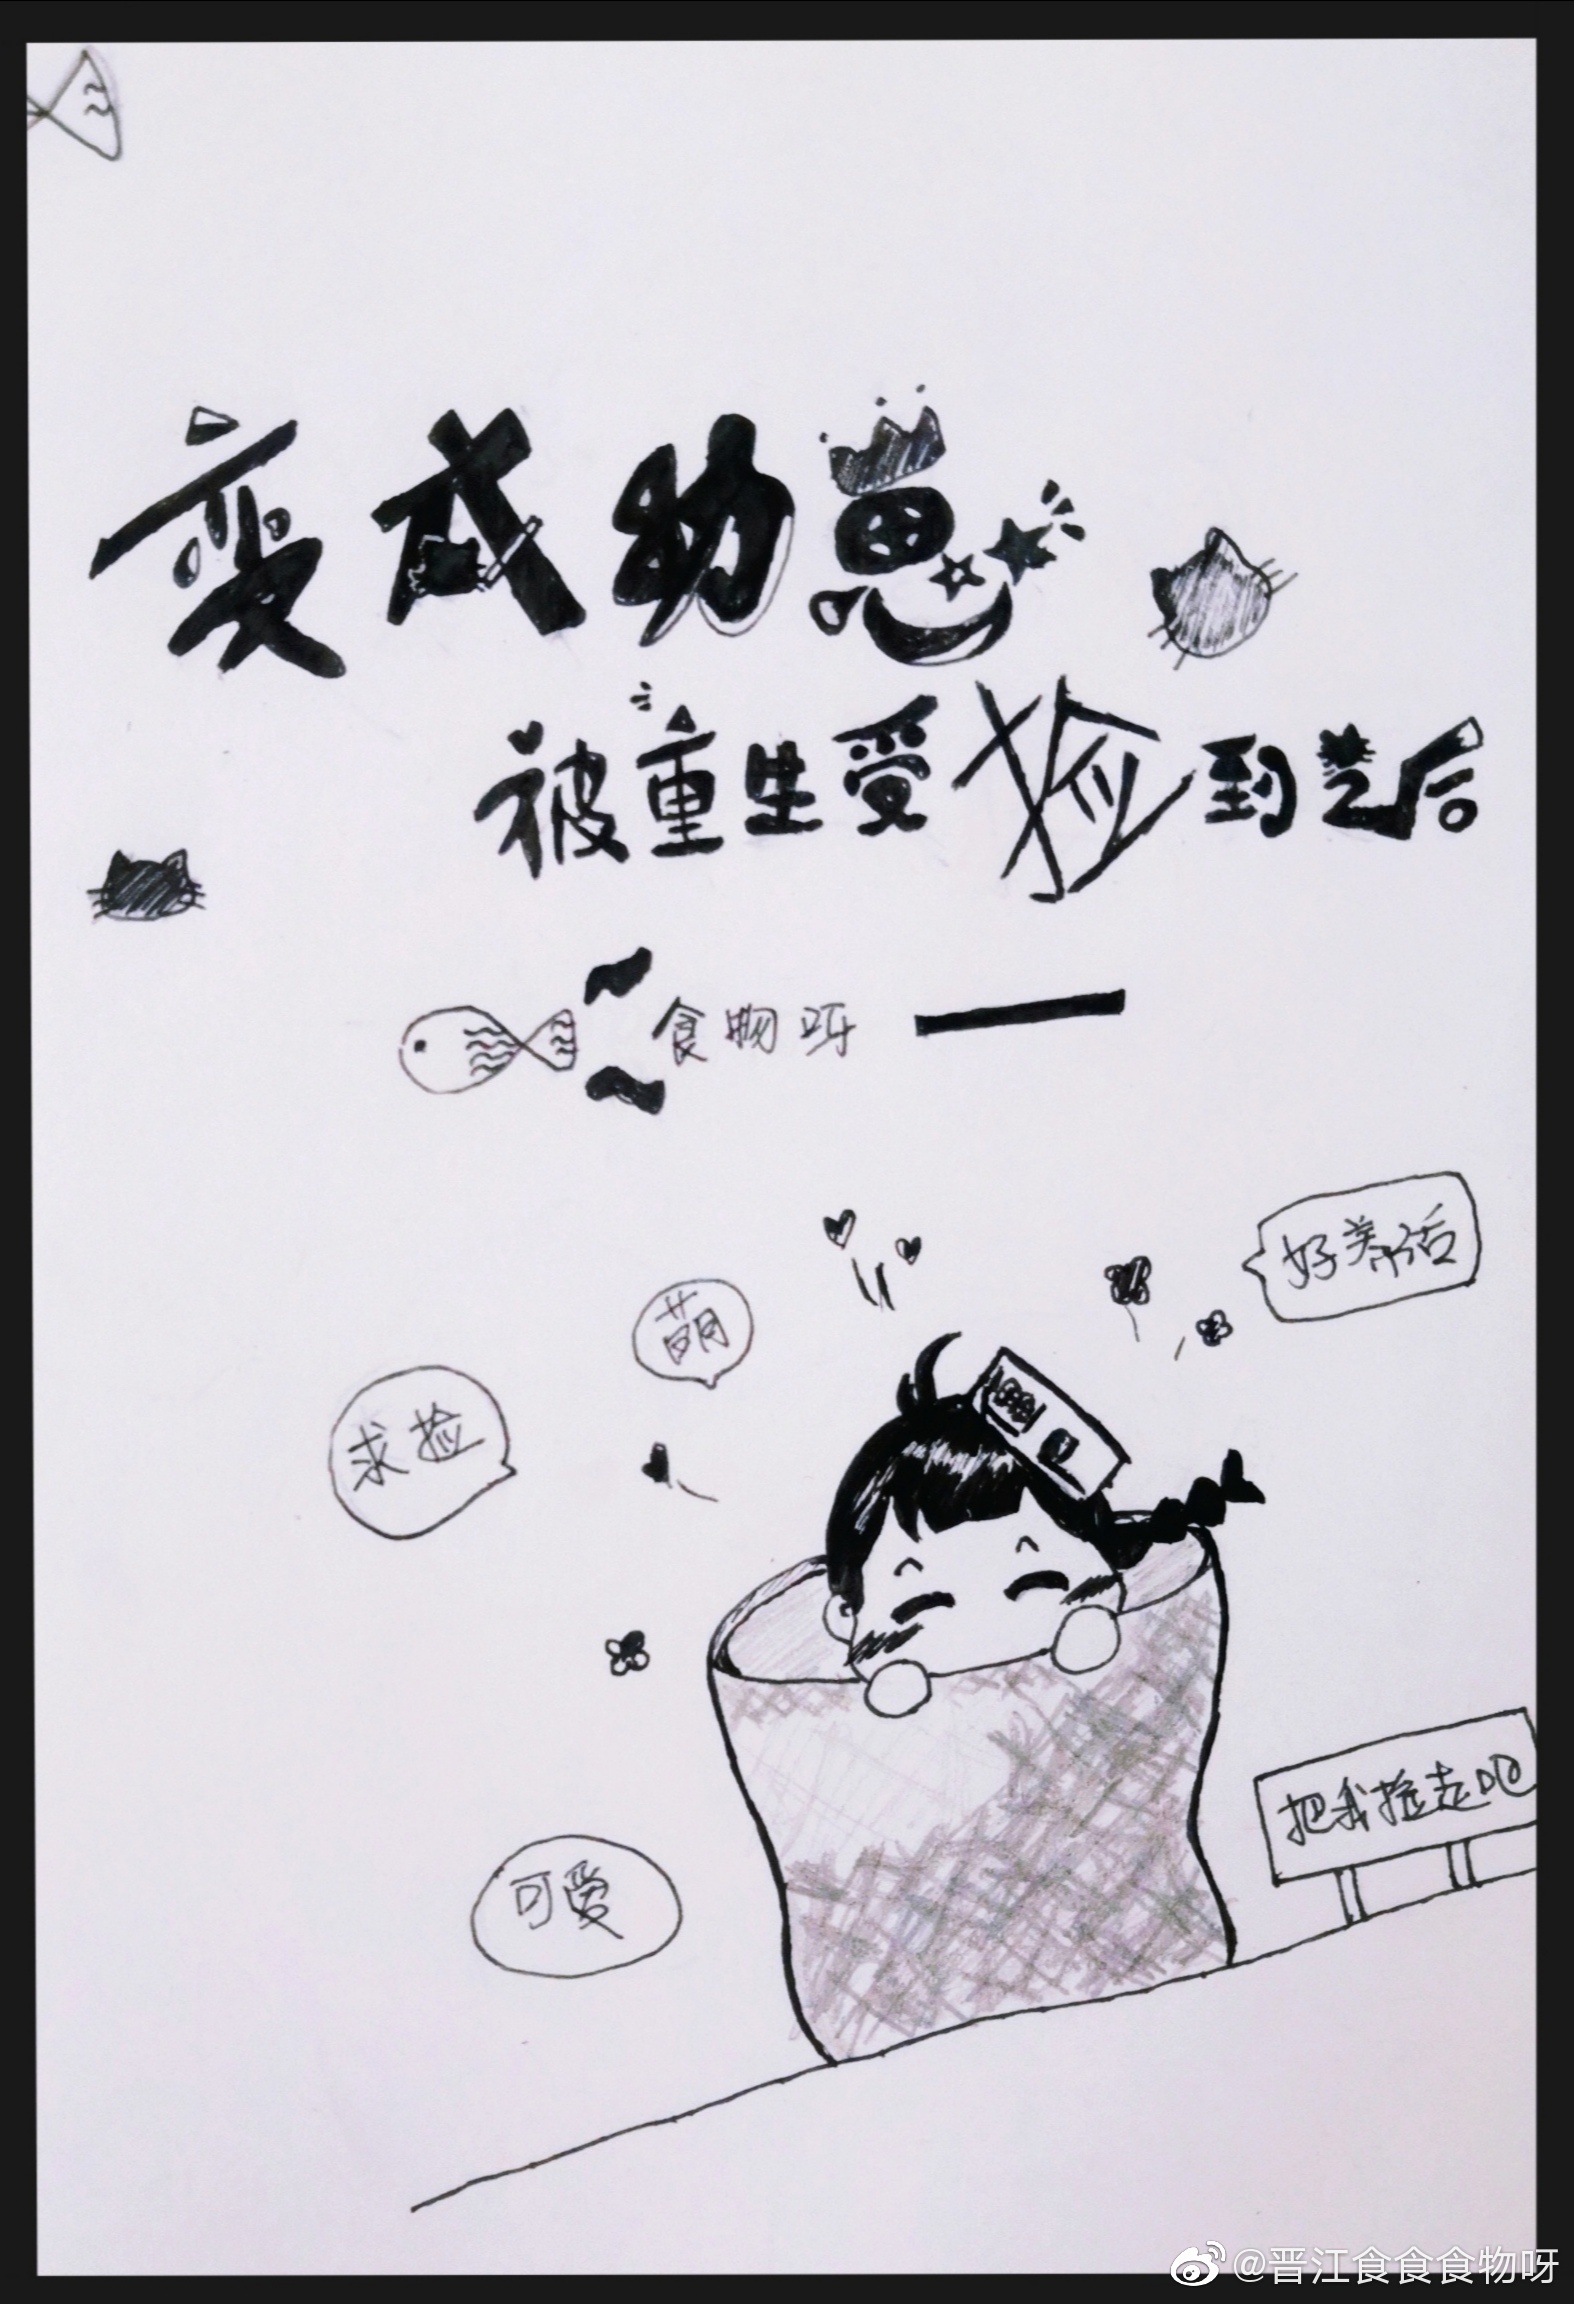 变成幼崽
被重生受捡到之后
食物呀
好养活
萌
求捡
把我捡走吧
可爱
@晋江食食食物呀